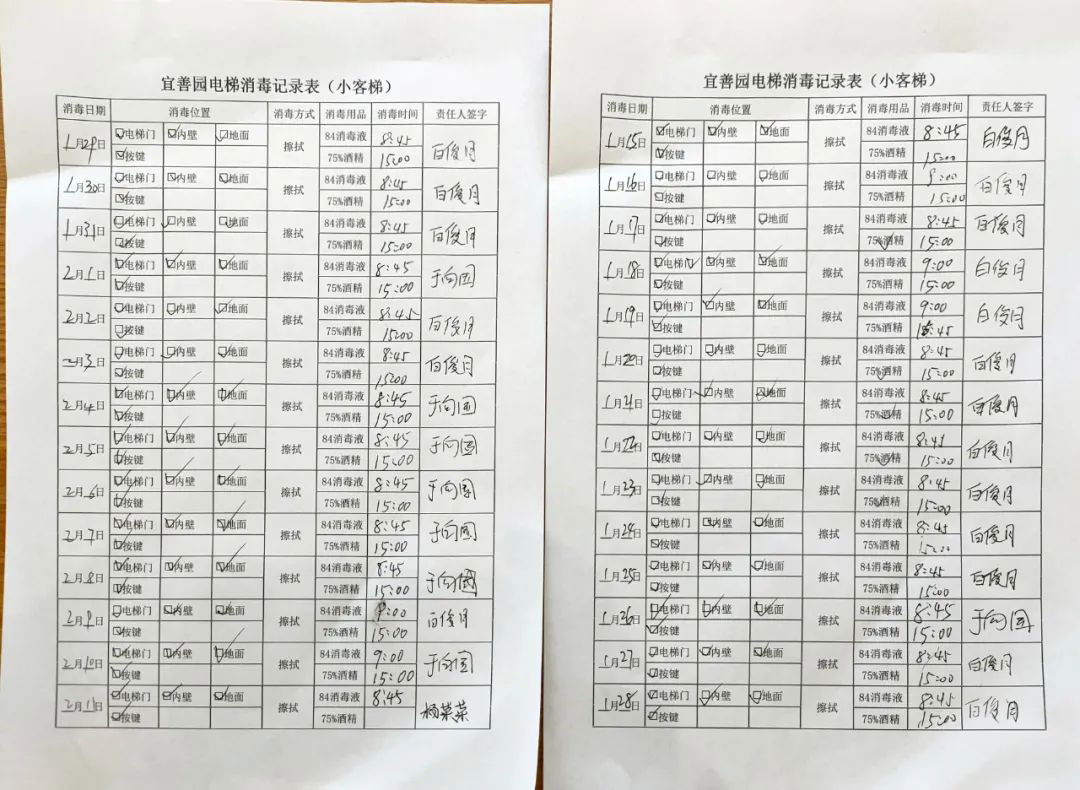 宜善园电梯消毒记录表（小客梯）
消毒日期 消毒位置 消毒方式 消毒用品 消毒时间 责任人签字
1月29日 电梯门 内壁 地面 擦拭 84消毒液 8:45 白俊月
按键 75%酒精 15:00
1月30日 电梯门 内壁 地面 擦拭 84消毒液 8:45 白俊月
按键 75%酒精 15:00
1月31日 电梯门 内壁 地面 擦拭 84消毒液 8:45 白俊月
按键 75%酒精 15:00
2月1日 电梯门 内壁 地面 擦拭 84消毒液 8:45 于向国
按键 75%酒精 15:00
2月2日 电梯门 内壁 地面 擦拭 84消毒液 8:45 白俊月
按键 75%酒精 15:00
2月3日 电梯门 内壁 地面 擦拭 84消毒液 8:45 白俊月
按键 75%酒精 15:00
2月4日 电梯门 内壁 地面 擦拭 84消毒液 8:45 于向国
按键 75%酒精 15:00
2月5日 电梯门 内壁 地面 擦拭 84消毒液 8:45 于向国
按键 75%酒精 15:00
2月6日 电梯门 内壁 地面 擦拭 84消毒液 8:45 于向国
按键 75%酒精 15:00
2月7日 电梯门 内壁 地面 擦拭 84消毒液 8:45 于向国
按键 75%酒精 15:00
2月8日 电梯门 内壁 地面 擦拭 84消毒液 8:45 于向國
按键 75%酒精 15:00
2月9日 电梯门 内壁 地面 擦拭 84消毒液 9:00 白俊月
按键 75%酒精 15:00
2月10日 电梯门 内壁 地面 擦拭 84消毒液 9:00 于向国
按键 75%酒精 15:00
2月11日 电梯门 内壁 地面 擦拭 84消毒液 8:45 杨荣荣
按键 75%酒精
宜善园电梯消毒记录表（小客梯）
消毒日期 消毒位置 消毒方式 消毒用品 消毒时间 责任人签字
1月15日 电梯门 内壁 地面 擦拭 84消毒液 8:45 白俊月
按键 75%酒精 15:00
1月16日 电梯门 内壁 地面 擦拭 84消毒液 9:00 白俊月
按键 75%酒精 15:00
1月17日 电梯门 内壁 地面 擦拭 84消毒液 8:45 白俊月
按键 75%酒精 15:00
1月18日 电梯门 内壁 地面 擦拭 84消毒液 9:00 白俊月
按键 75%酒精 15:00
1月19日 电梯门 内壁 地面 擦拭 84消毒液 9:00 白俊月
按键 75%酒精 15:45
1月20日 电梯门 内壁 地面 擦拭 84消毒液 8:45 白俊月
按键 75%酒精 15:00
1月21日 电梯门 内壁 地面 擦拭 84消毒液 8:45 白俊月
按键 75%酒精 15:00
1月22日 电梯门 内壁 地面 擦拭 84消毒液 8:45 白俊月
按键 75%酒精 15:00
1月23日 电梯门 内壁 地面 擦拭 84消毒液 8:45 白俊月
按键 75%酒精 15:00
1月24日 电梯门 内壁 地面 擦拭 84消毒液 8:45 白俊月
按键 75%酒精 15:00
1月25日 电梯门 内壁 地面 擦拭 84消毒液 8:45 白俊月
按键 75%酒精 15:00
1月26日 电梯门 内壁 地面 擦拭 84消毒液 8:45 于向国
按键 75%酒精 15:00
1月27日 电梯门 内壁 地面 擦拭 84消毒液 8:45 白俊月
按键 75%酒精 15:00
1月28日 电梯门 内壁 地面 擦拭 84消毒液 8:45 白俊月
按键 75%酒精 15:00